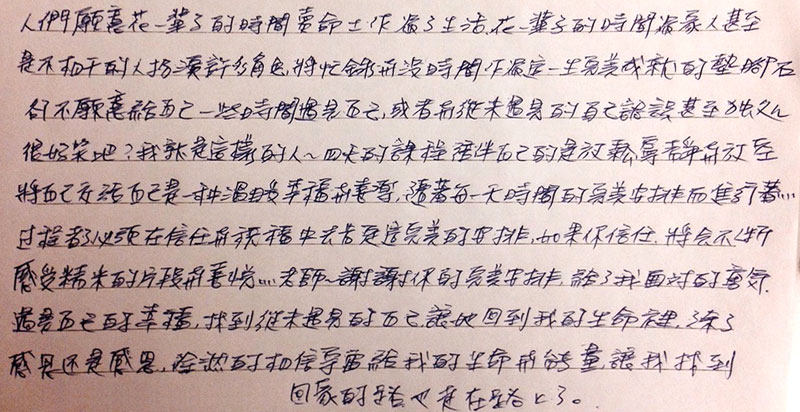 人們願意花一輩子的時間賣命工作為了生活,花一輩子的時間為家人甚至
是不相干的人扮演許多角色,將忙錄和沒時間作為這一生完美成就的墊腳石
卻不願意給自己一些時間遇見自己,或者和從未遇見的自己認識甚至獨處
很好笑吧?我就是這樣的人~四天的課程陪伴自己的是放鬆寧靜和放空
將自己交給自己是一種溫暖幸福和喜樂,隨著每一天時間的完美安排而進行著....
過程都必須在信任和祝福中去肯定這完美的安排,如果你信任.將會不斷
感受精采的片段和喜悅....老師~謝謝你的完美安排,給了我面對的勇氣.
遇見自己的幸福,找到從未遇見的自己,讓她回到我的生命裡.除了
感恩還是感恩,除此的相信專屬給我的生命和能量,讓我找到
回家的路也走在路上了。